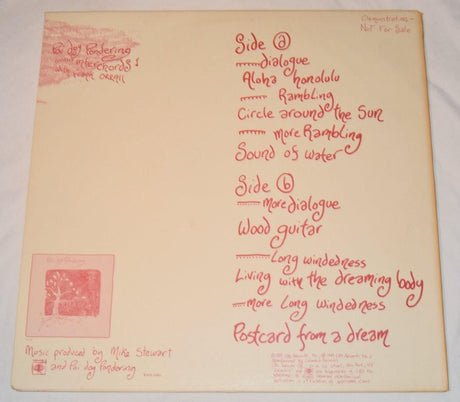 poi dog pondering
interchords
with frank orrall
Side a
dialogue
Aloha honolulu
Rambling
Circle around the Sun
more Rambling
Sound of water
Side b
more dialogue
Wood guitar
Long windedness
Living with the dreaming body
more Long windedness
Postcard from a dream
Demonstration -
Not For Sale
Music produced by Mike Stewart
and Poi dog Pondering